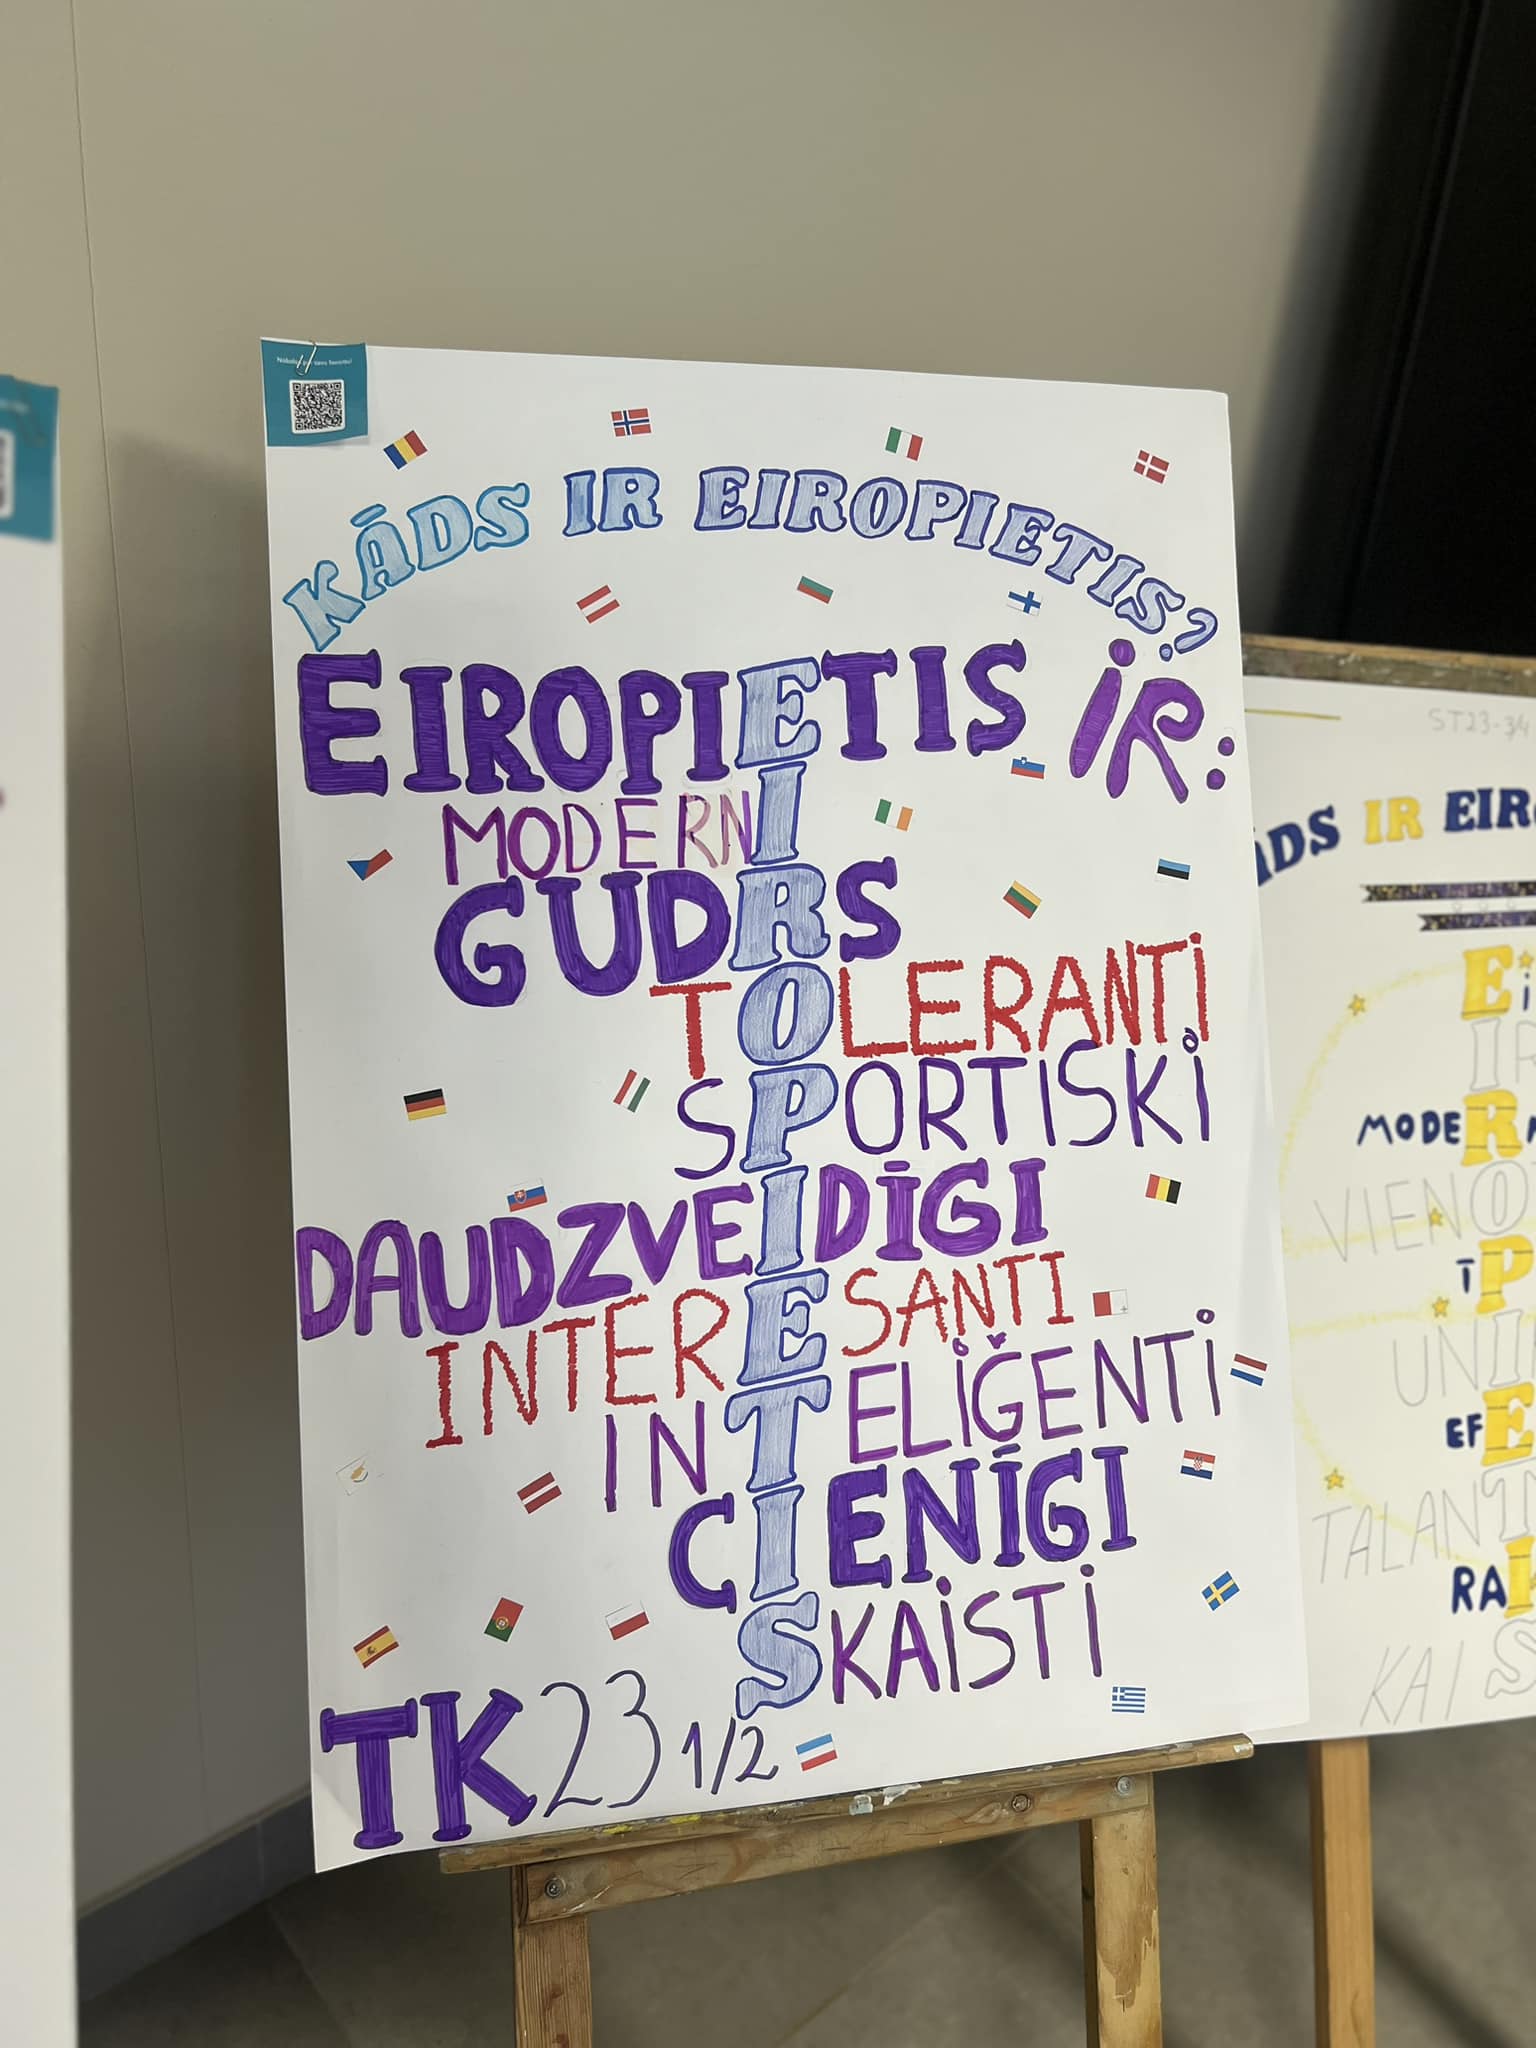 Nobalso par savu favorītu!
KĀDS IR EIROPIETIS?
EIROPIETIS IR:
MODERNI
GUDRS
TOLERANTI
SPORTISKI
DAUDZVEIDĪGI
INTERESANTI
INTELIĢENTI
CIENĪGI
SKAISTI
TK23 1/2
ST23-3/4
KĀDS IR EIRO
MODERN
VIENO
UNI
EFE
TALANT
RAI
KAIS